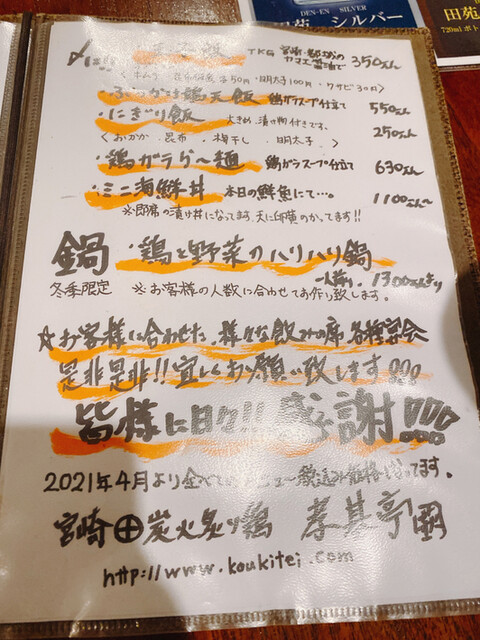 DEN-EN SILVER
田苑 シルバー
田苑
720ml
〆
TKG 宮崎・都城の
カネヱ醤油で 350えん
明太子100円・ワサビ30円〉
・ぶっかけ鶏天飯 鶏ガラスープ仕立て 550えん
・にぎり飯 大きめ、漬け物付きです。 250えん
〈おかか・昆布・梅干し・明太子〉
・鶏ガラら〜麺 鶏ガラスープ仕立て 630えん
・ミニ海鮮丼 本日の鮮魚にて…。 1100えん〜
※即席の漬け丼になってます。天に卵黄のかってます!!
鍋 ・鶏と野菜のハリハリ鍋
一人前 1300えんより
冬季限定 ※お客様の人数に合わせてお作り致します。
☆お客様に合わせた、様々な飲み席、各種宴会
是非是非!!宜しくお願い致します!!!
皆様に日々!!感謝!!!
2021年4月より全べてのメニュー税込み価格となってます。
宮崎 炭火炙り鶏
http://www.koukitei.com